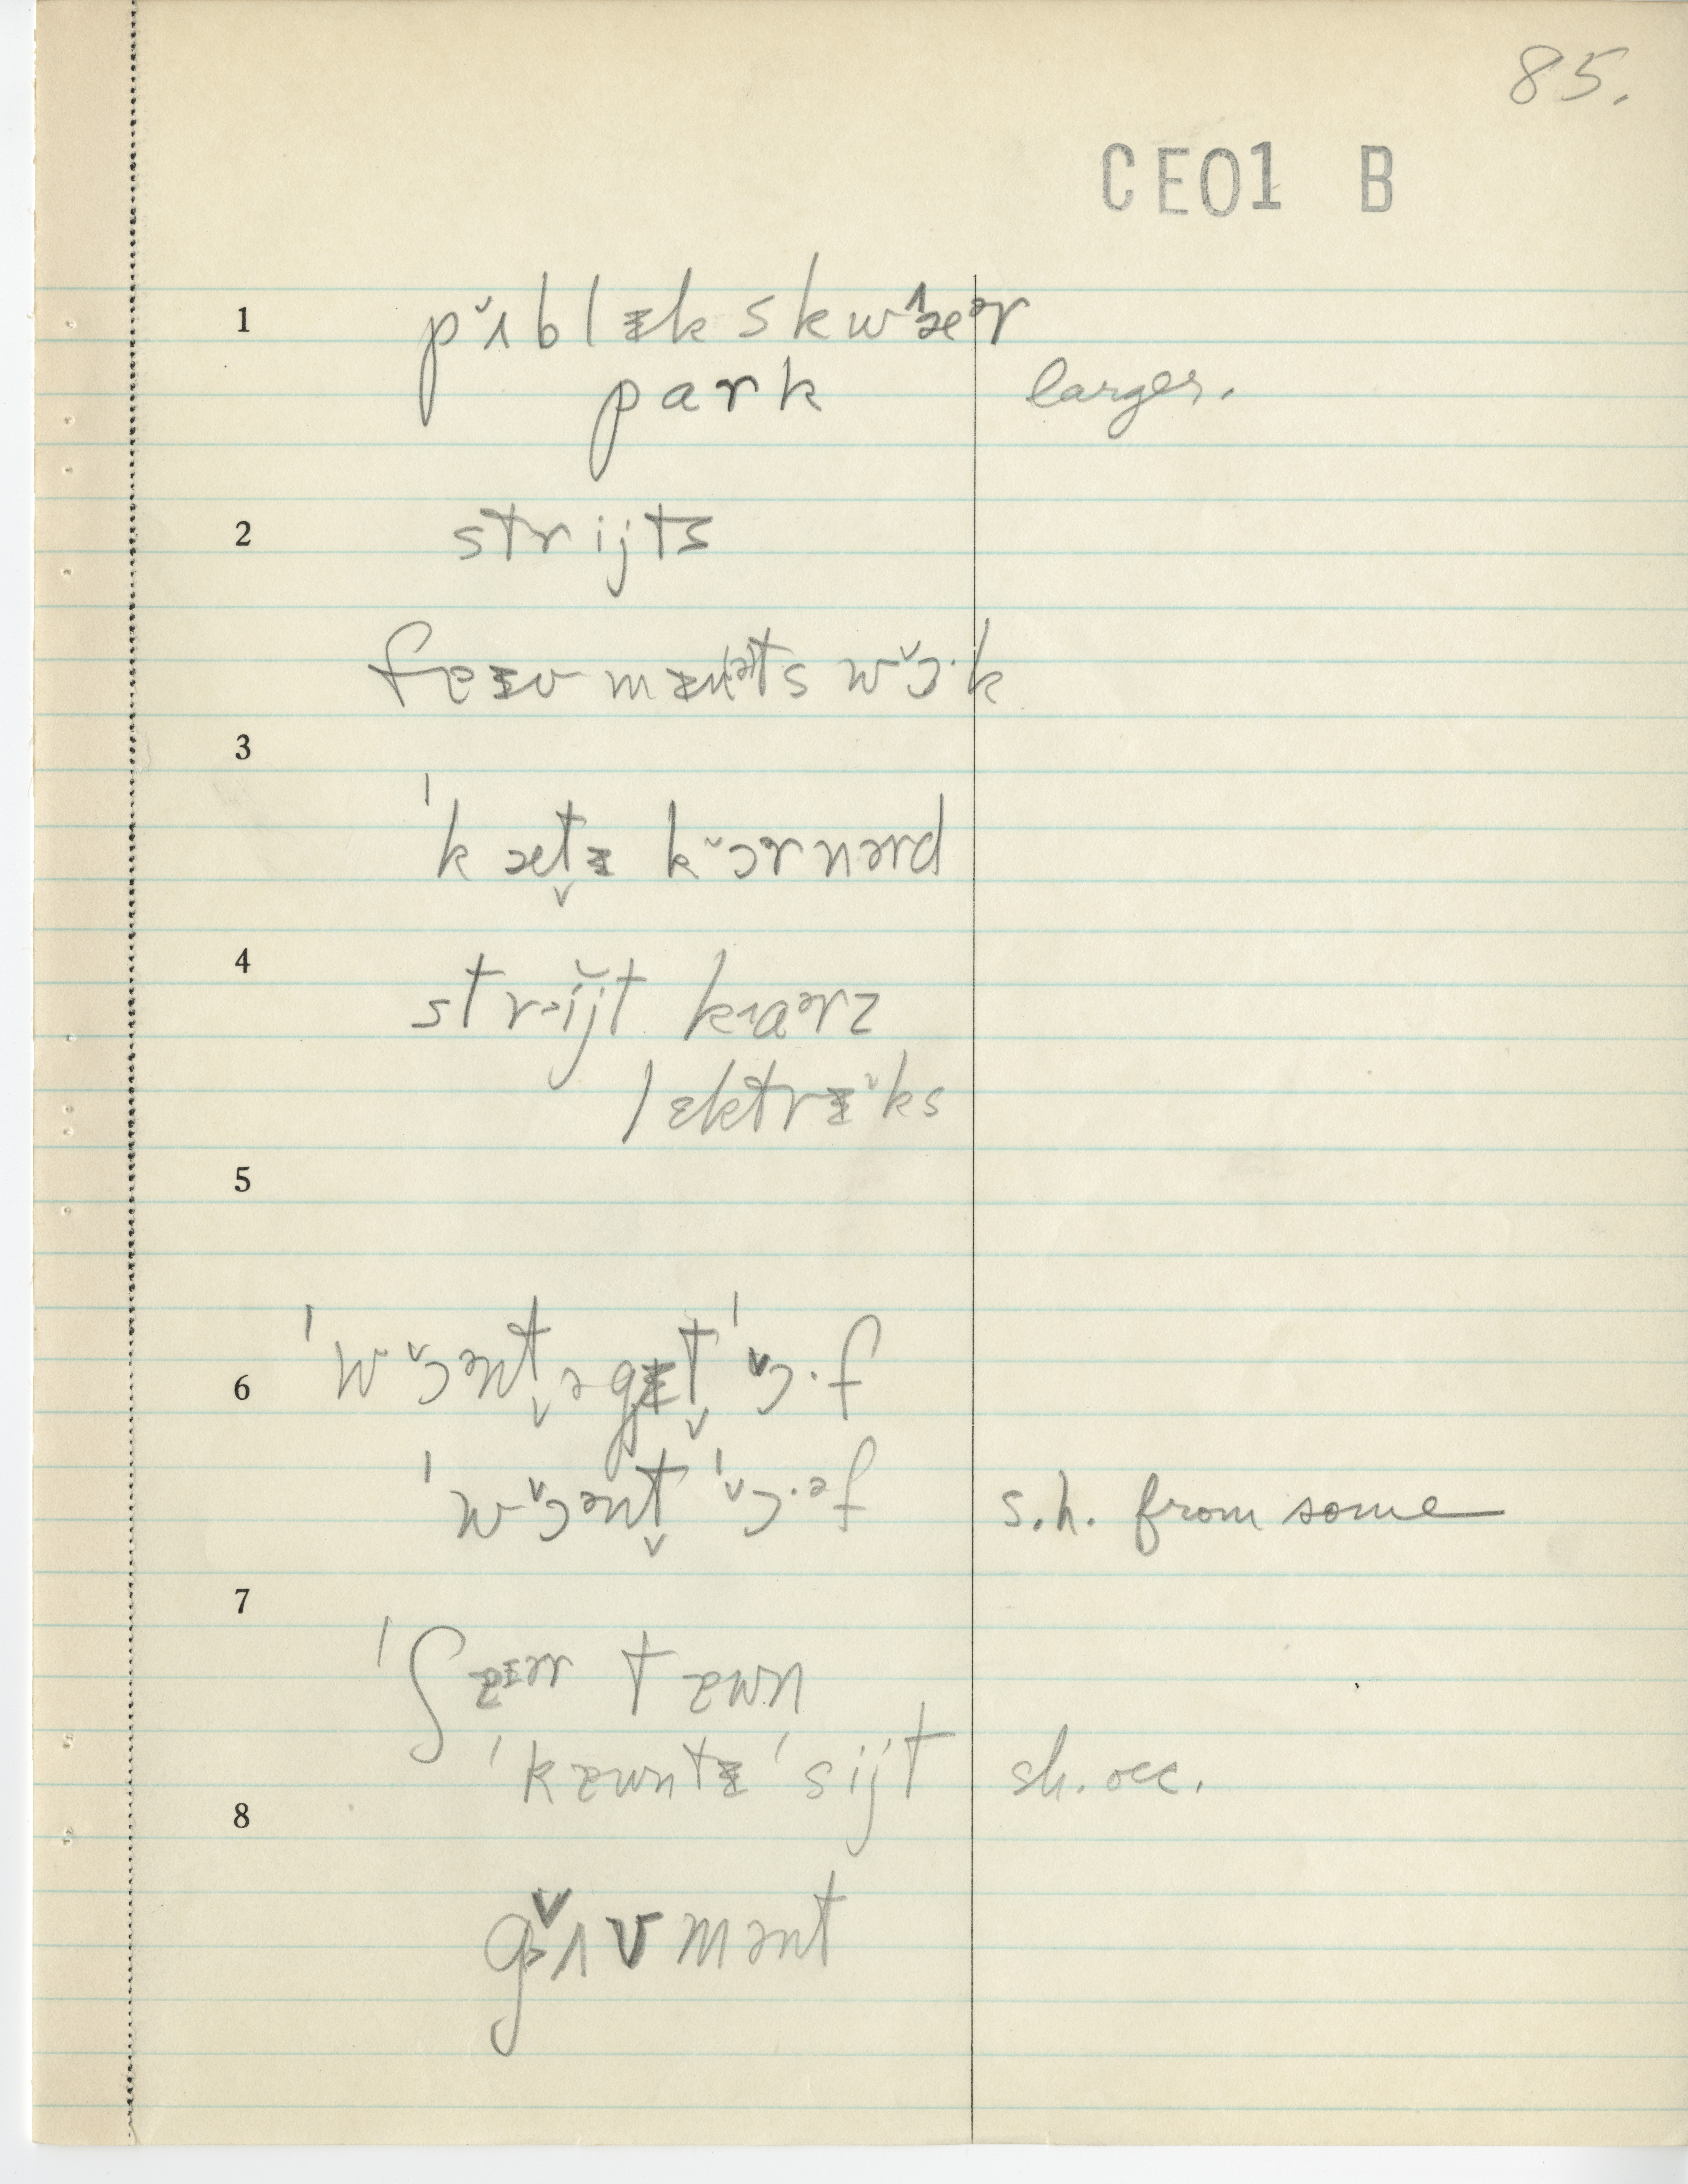 85.
CE01 B
1 pʌ̌blɪk skwæər
park larger.
2 strijts
feɪv mɪnəts wɔ̌·k
3
ˈkætɪ kɔ̌rnərd
4 strijt kaərz
lɛktrɪks
5
6 ˈwɔ̌ənt̬ ə gɪt̬ ˈɔ̌·f
ˈwɔ̌ənt̬ ˈɔ̌·əf s.h. from some
7
ˈʃɐɪər tɐwn
ˈkɐwntɪ ˈsijt sh. occ.
8
gʌ̌vmənt